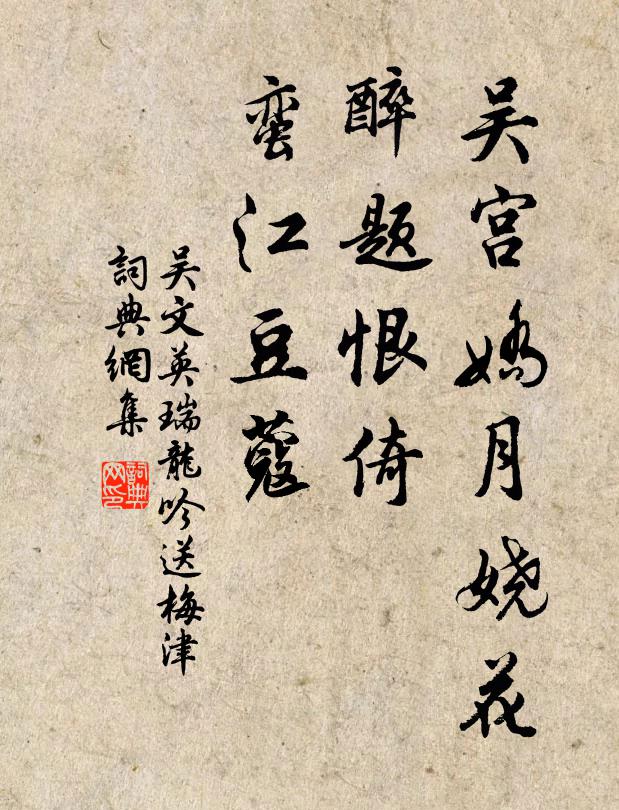 吴宫娇月娆花
醉题恨倚
蛮江豆蔻
吴文英瑞龍吟送梅津
詞典網集
詞典网印